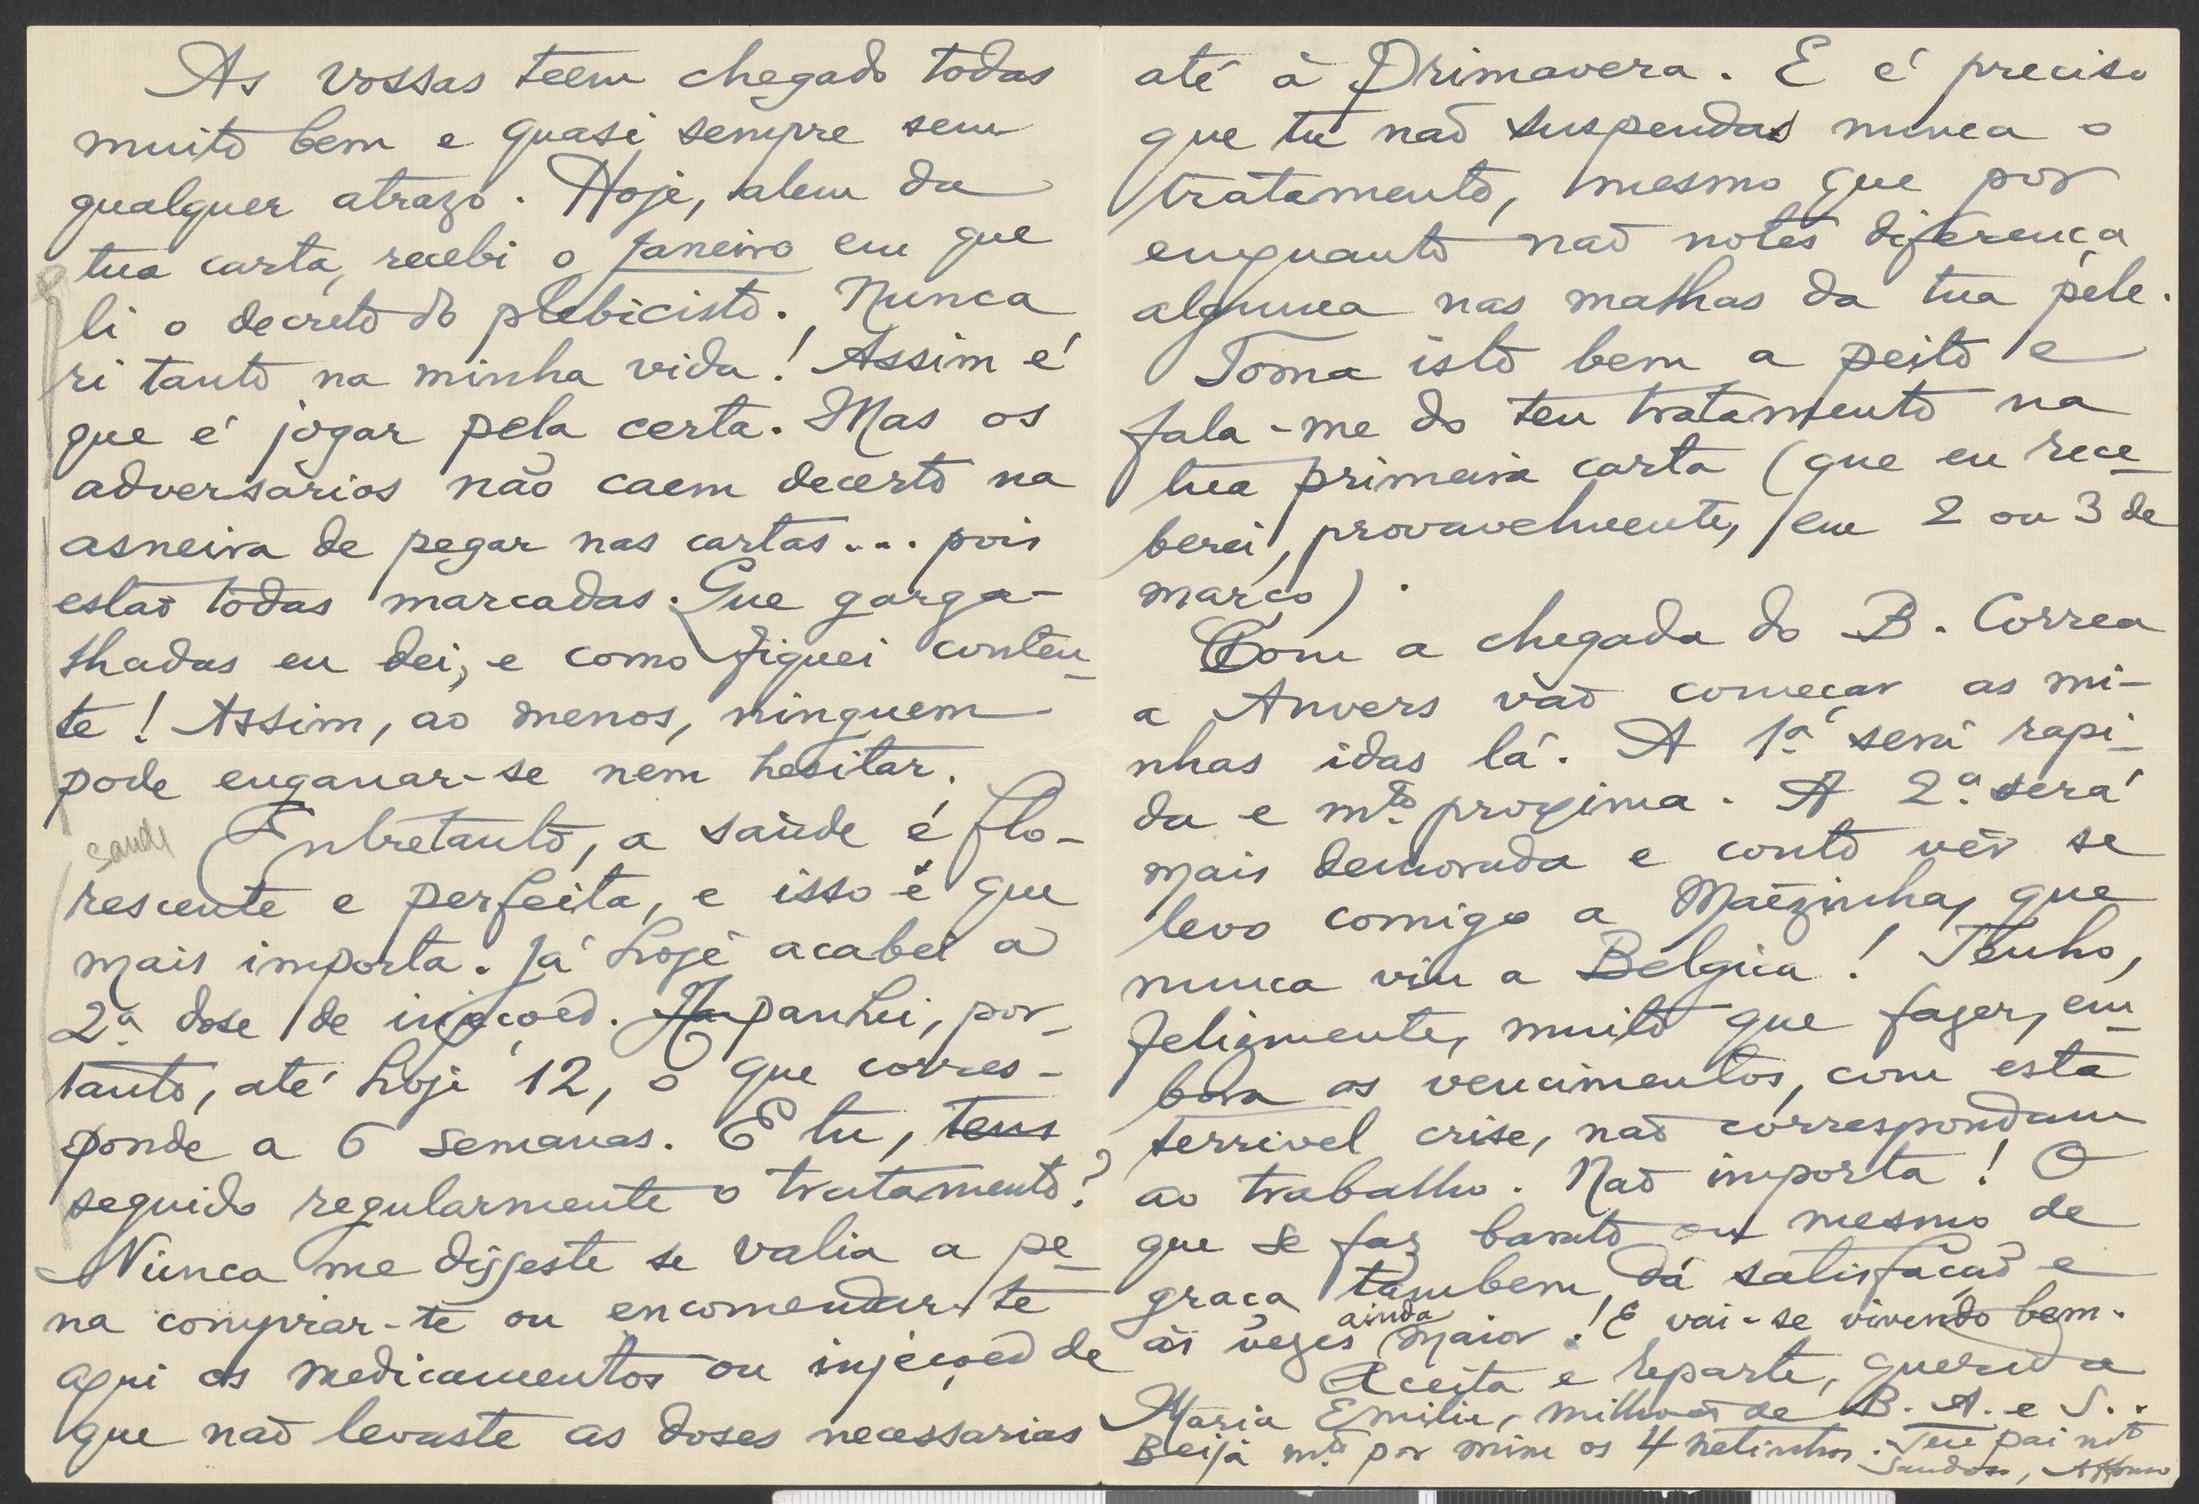 As vossas teem chegado todas
muito bem e quasi sempre sem
qualquer atrazo. Hoje, alem da
tua carta, recebi o Janeiro em que
li o decreto do plebicisto. Nunca
ri tanto na minha vida! Assim é
que é jogar pela certa. Mas os
adversarios não caem decerto na
asneira de pegar nas cartas... pois
estão todas marcadas. Que garga-
lhadas eu dei, e como fiquei conten-
te! Assim, ao menos, ninguem
pode enganar-se nem hesitar.
saude
Entretanto, a saúde é flo-
rescente e perfeita, e isso é que
mais importa. Já hoje acabei a
2ª dose de injeções. Apanhei, por-
tanto, até hoje 12, o que corres-
ponde a 6 semanas. E tu, tens
seguido regularmente o tratamento?
Nunca me disseste se valia a pe-
na comprar-te ou encomendar-te
aqui os medicamentos ou injeções de
que não levaste as doses necessarias
até à Primavera. E é preciso
que tu não suspendas nunca o
tratamento, mesmo que por
enquanto não notes diferença
alguma nas malhas da tua péle.
Toma isto bem a peito e
fala-me do teu tratamento na
tua primeira carta (que eu rece-
berei, provavelmente, em 2 ou 3 de
março).
Com a chegada do B. Correa
a Anvers vão começar as mi-
nhas idas lá. A 1ª será rapi-
da e mto proxima. A 2ª será
mais demorada e conto vêr se
levo comigo a Mãezinha, que
nunca viu a Belgica! Tenho,
felizmente, muito que fazer, em-
bora os vencimentos, com esta
terrivel crise, não correspondam
ao trabalho. Não importa! O
que se faz barato ou mesmo de
graça tambem dá satisfação e
às vezes ainda maior! E vai-se vivendo bem.
Aceita e reparte, querida
Maria Emilia, milhões de B. A. e S..
Beija mto por mim os 4 netinhos. Teu pai mto
Saudoso, Affonso